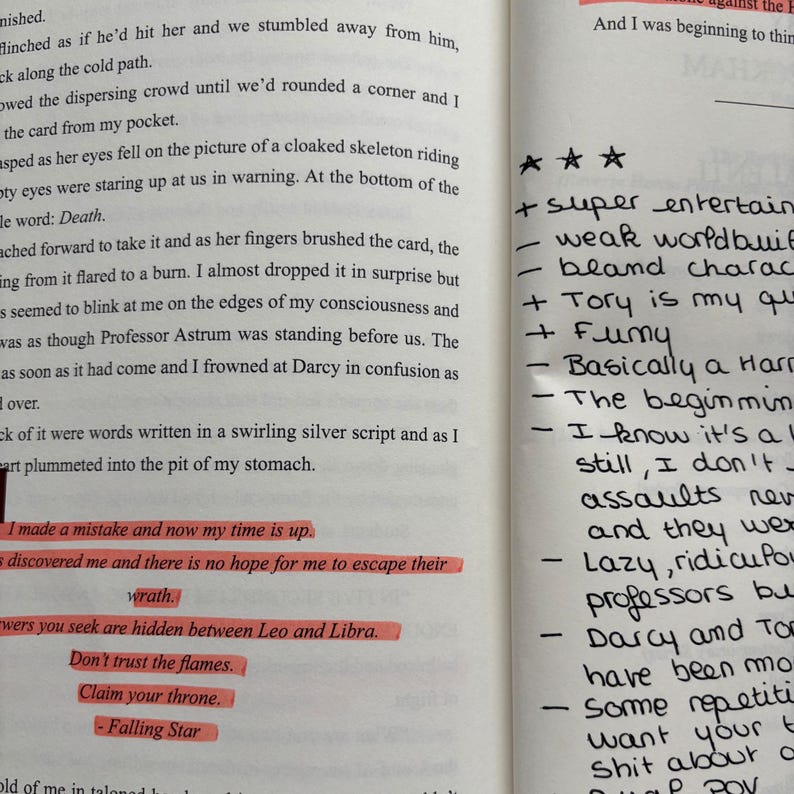 nished.
flinched as if he’d hit her and we stumbled away from him,
ck along the cold path.
owed the dispersing crowd until we’d rounded a corner and I
the card from my pocket.
asped as her eyes fell on the picture of a cloaked skeleton riding
pty eyes were staring up at us in warning. At the bottom of the
le word: Death.
ached forward to take it and as her fingers brushed the card, the
ing from it flared to a burn. I almost dropped it in surprise but
s seemed to blink at me on the edges of my consciousness and
was as though Professor Astrum was standing before us. The
as soon as it had come and I frowned at Darcy in confusion as
over.
ck of it were words written in a swirling silver script and as I
art plummeted into the pit of my stomach.
I made a mistake and now my time is up.
s discovered me and there is no hope for me to escape their
wrath.
wers you seek are hidden between Leo and Libra.
Don't trust the flames.
Claim your throne.
- Falling Star
old of me in taloned
against the
And I was beginning to thin
+ super entertain
- weak worldbuil
- bland charac
+ Tory is my qu
+ Funny
- Basically a Harr
- The beginnin
- I know it's a
still, I don't
assaults
and they wer
- Lazy, ridiculou
professors bu
- Darcy and Tor
have been mo
- Some repetiti
want your t
shit about
POV